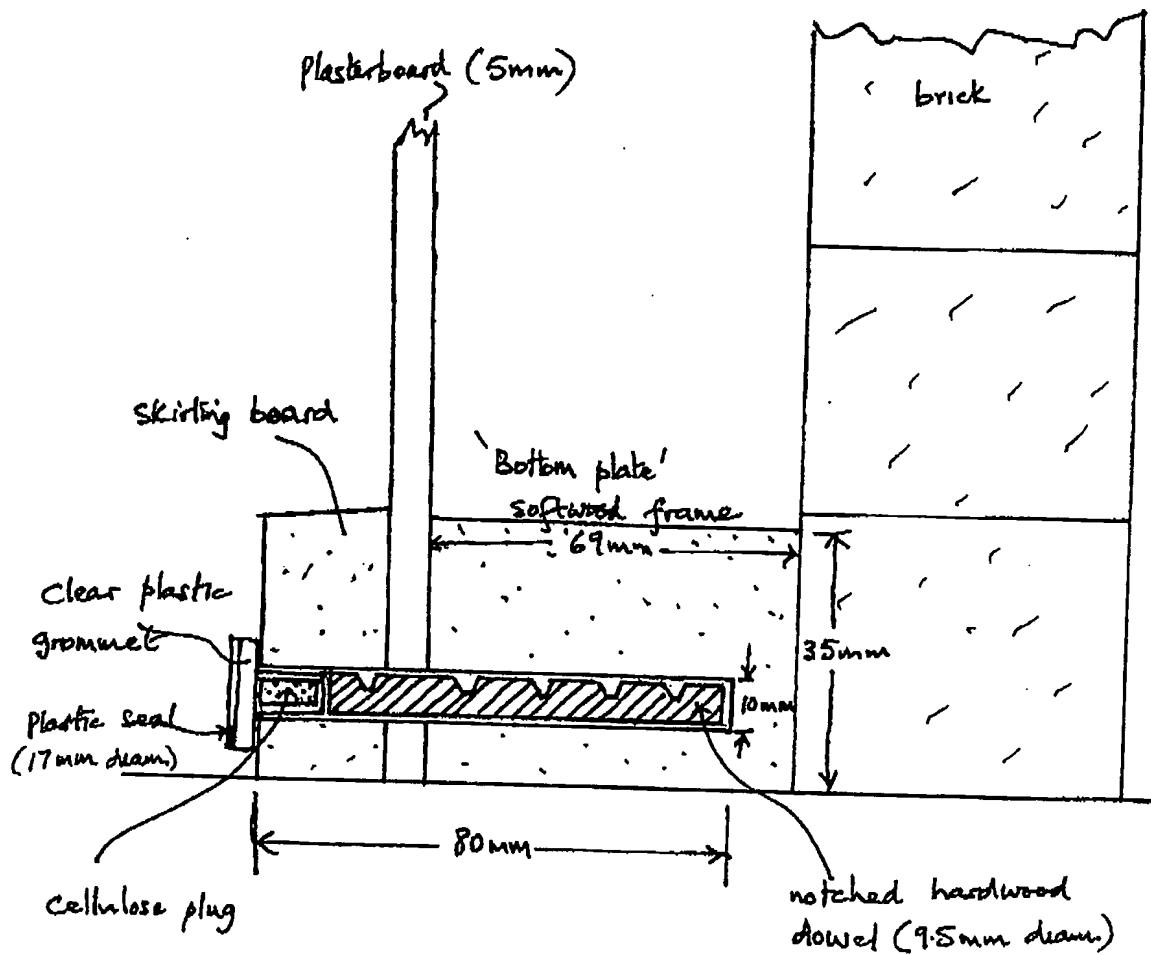 Plasterboard (5mm)
brick
Skirting board
'Bottom plate'
softwood frame
69mm
Clear plastic
grommet
35mm
10mm
Plastic seal
(17mm diam.)
80mm
Cellulose plug
notched hardwood
dowel (9.5mm diam.)